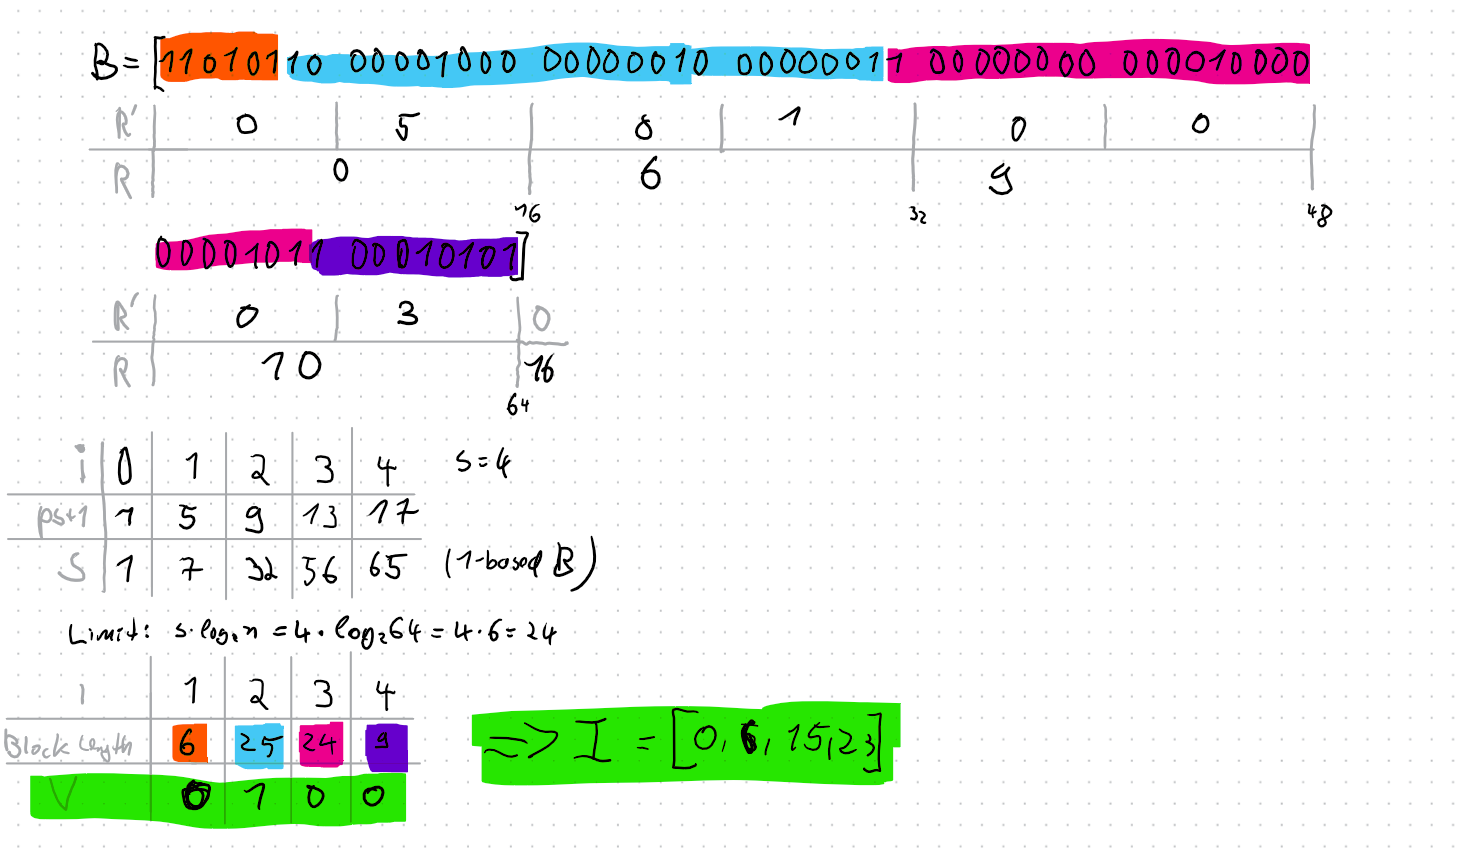 B = [11010110 00001000 00000010 00000011 00000000 000010000
R' 0 5 0 1 0 0
R 0 6 9
16 32 48
00001011 00010101]
R' 0 3 0
R 10 16
64
i 0 1 2 3 4 s=4
ps+1 1 5 9 13 17
S 1 7 32 56 65 (1-based B)
Limit: s·log₂n = 4·log₂64 = 4·6 = 24
i 1 2 3 4
Block length 6 25 24 9
V 0 1 0 0
=> I = [0, 6, 15, 23]